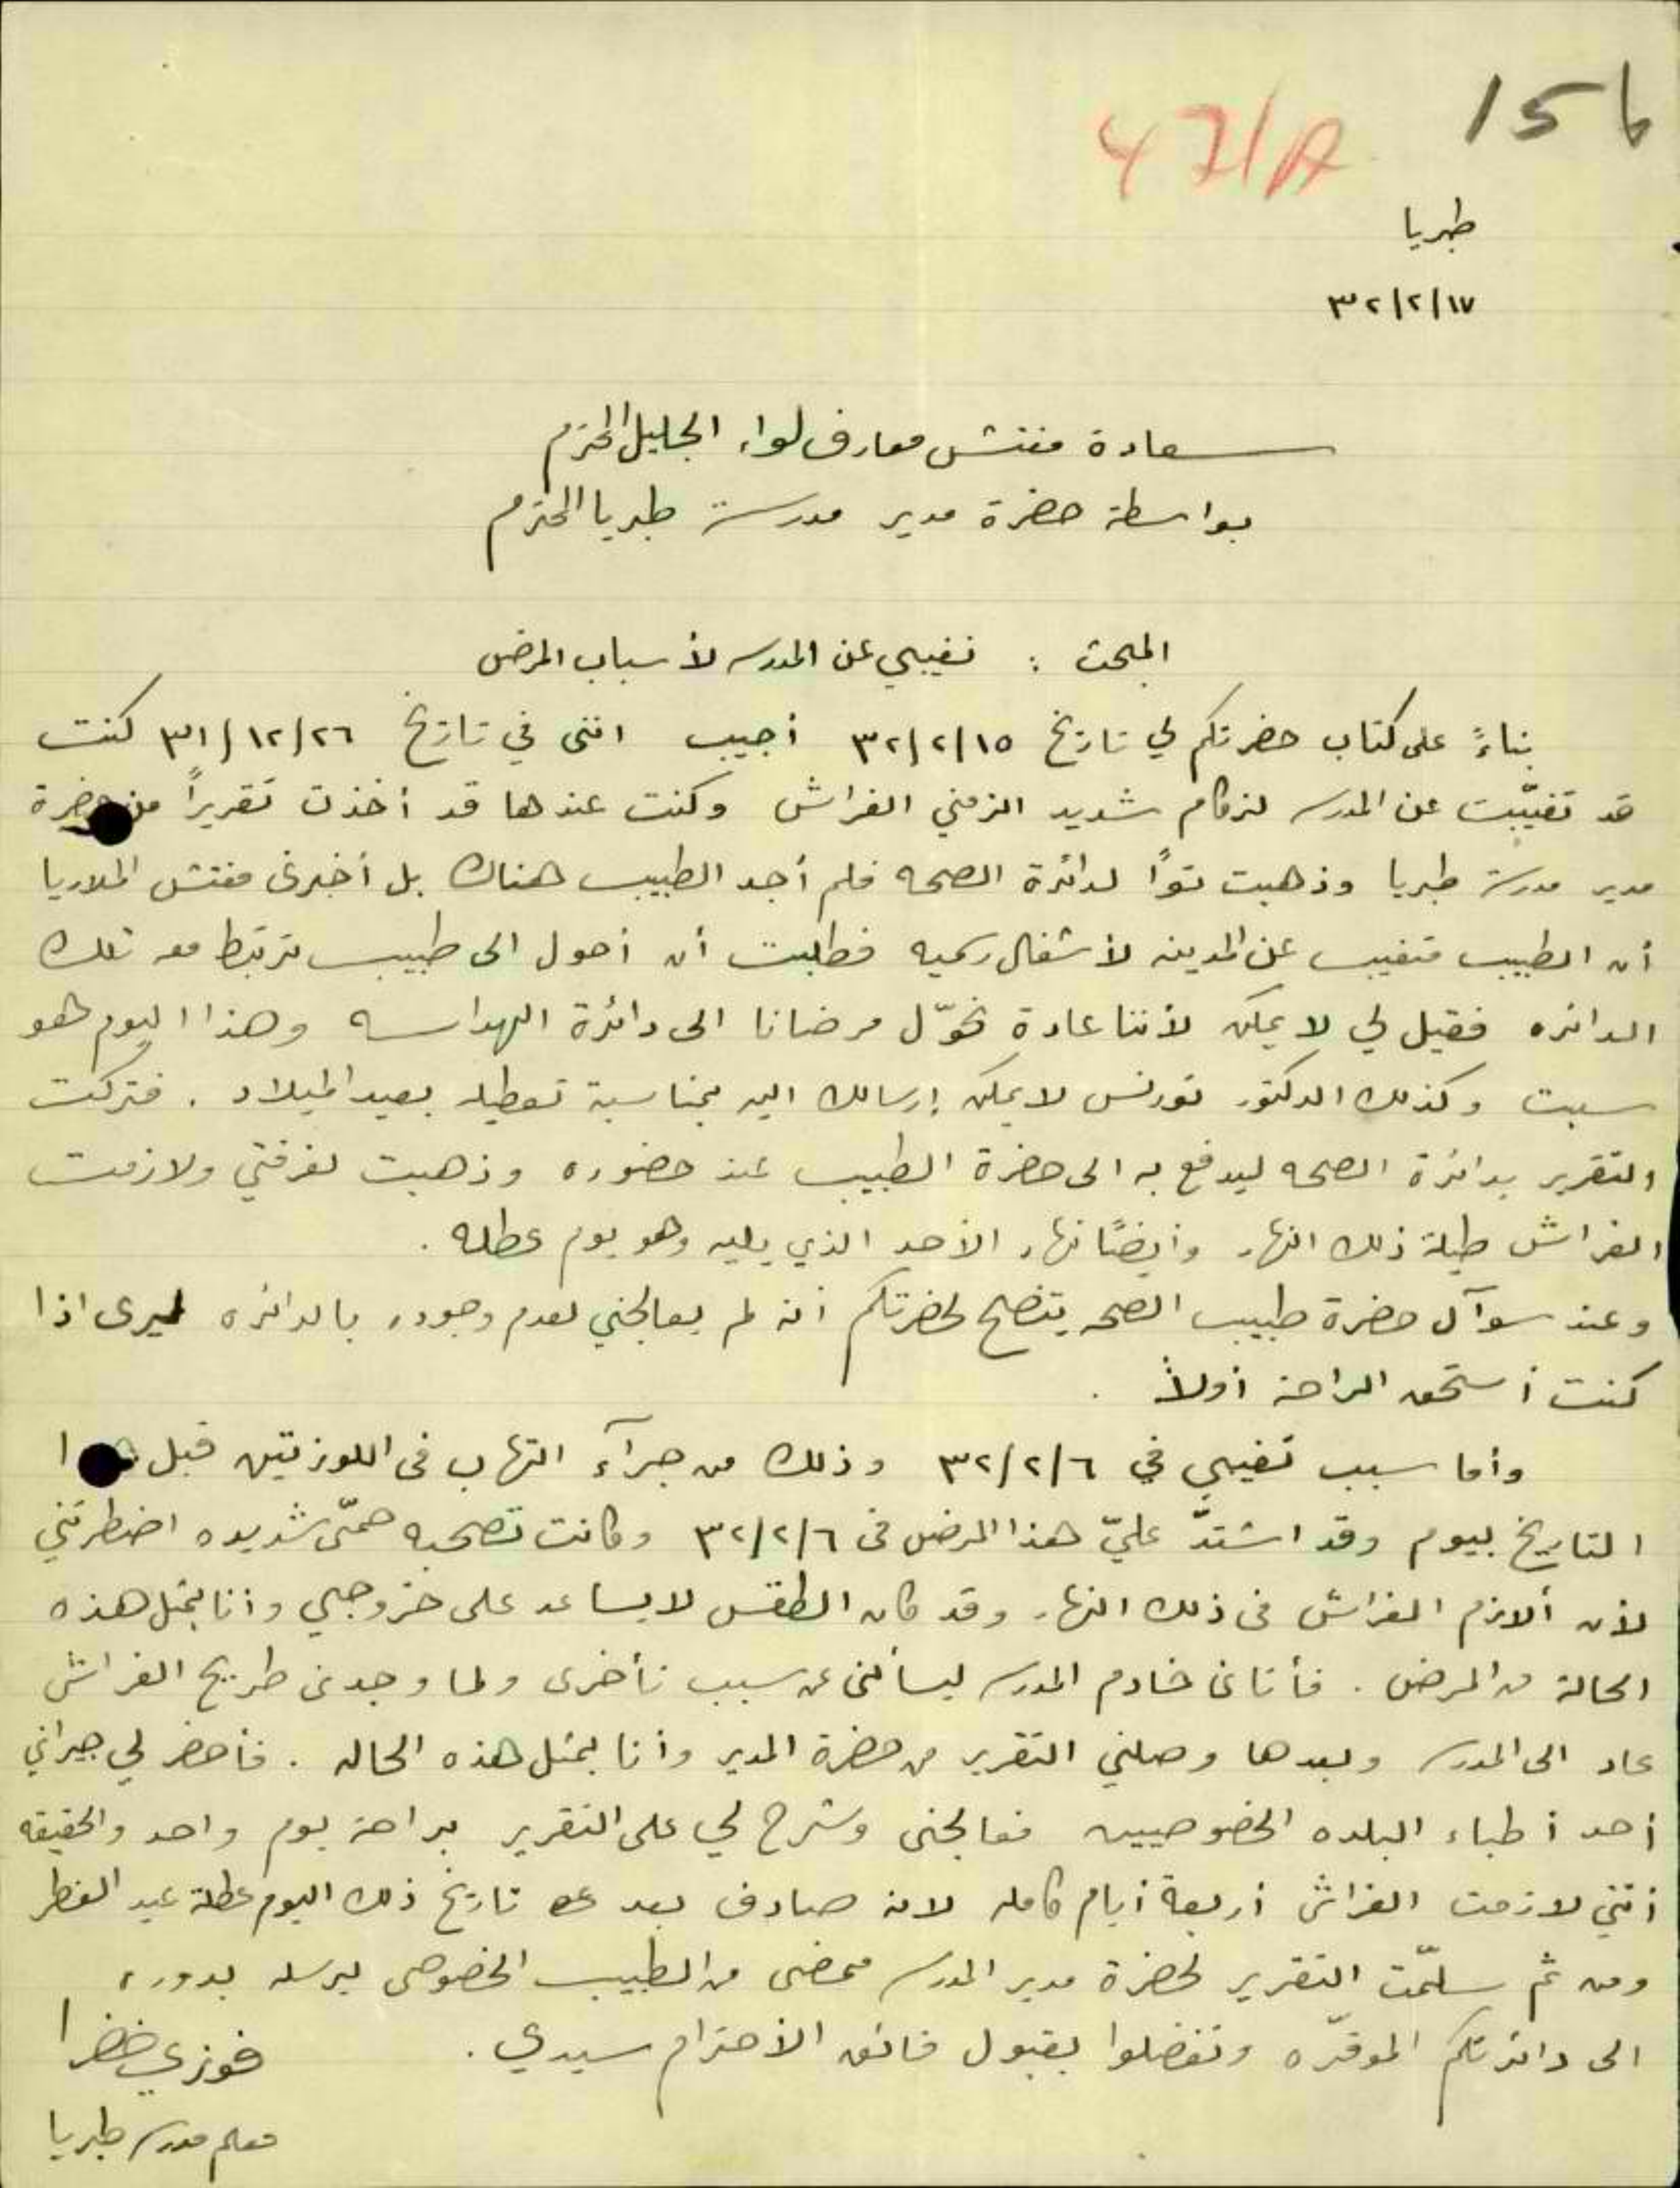 15b
471A
طبريا
٣٢/٢/١٧
سعادة مفتش معارف لواء الجليل المحترم
بواسطة حضرة مدير مدرسة طبريا المحترم
المبحث : تغيبي عن المدرسه لأسباب المرض
بناءً على كتاب حضرتكم لي تاريخ ٣٢/٢/١٥ أجيب انني في تاريخ ٣١/١٢/٢٦ كنت
قد تغيّبت عن المدرسه لزكام شديد الزمني الفراش وكنت عندها قد أخذت تقريراً من حضرة
مدير مدرسة طبريا وذهبت تواً لدائرة الصحه فلم أجد الطبيب هناك بل أخبرني مفتش الملاريا
أن الطبيب متغيب عن المدينه لأشغال رسميه فطلبت أن أحول الى طبيب ترتبط معه تلك
الدائره فقيل لي لا يمكن لأننا عادة نحوّل مرضانا الى دائرة الهداسه وهذا اليوم هو
سبت وكذلك الدكتور تورنس لا يمكن إرسالك اليه بمناسبة تعطيله بعيد الميلاد . فتركت
التقرير بدائرة الصحه ليدفع به الى حضرة الطبيب عند حضوره وذهبت لغرفتي ولازمت
الفراش طيلة ذلك النهار وأيضًا نهار الأحد الذي يليه وهو يوم عطله .
وعند سوآل حضرة طبيب الصحه يتضح لحضرتكم أنه لم يعالجني لعدم وجوده بالدائره ليرى اذا
كنت أستحق الراحة أولاً .
وأما سبب تغيبي في ٣٢/٢/٦ وذلك من جرآء التهاب في اللوزتين قبل هذا
التاريخ بيوم وقد اشتدّ عليّ هذا المرض في ٣٢/٢/٦ وكانت تصحبه حمّى شديده اضطرتني
لأن ألازم الفراش في ذلك النهار وقد كان الطقس لا يساعد على خروجي وأنا بمثل هذه
الحالة من المرض . فأتاني خادم المدرسه ليسألني عن سبب تأخري ولما وجدني طريح الفراش
عاد الى المدرسه وبعدها وصلني التقرير من حضرة المدير وأنا بمثل هذه الحاله . فأحضر لي جيراني
أحد أطباء البلده الخصوصيين فعالجني وشرح لي على التقرير براحة يوم واحد والحقيقه
أنني لازمت الفراش أربعة أيام كامله لانه صادف بعد تاريخ ذلك اليوم عطلة عيد الفطر
ومن ثم سلّمت التقرير لحضرة مدير المدرسه ممضى من الطبيب الخصوصي ليرسله بدوره
الى دائرتكم الموقّره وتفضلوا بقبول فائق الأحترام سيدي .
فوزي خضرا
معلم مدرسة طبريا